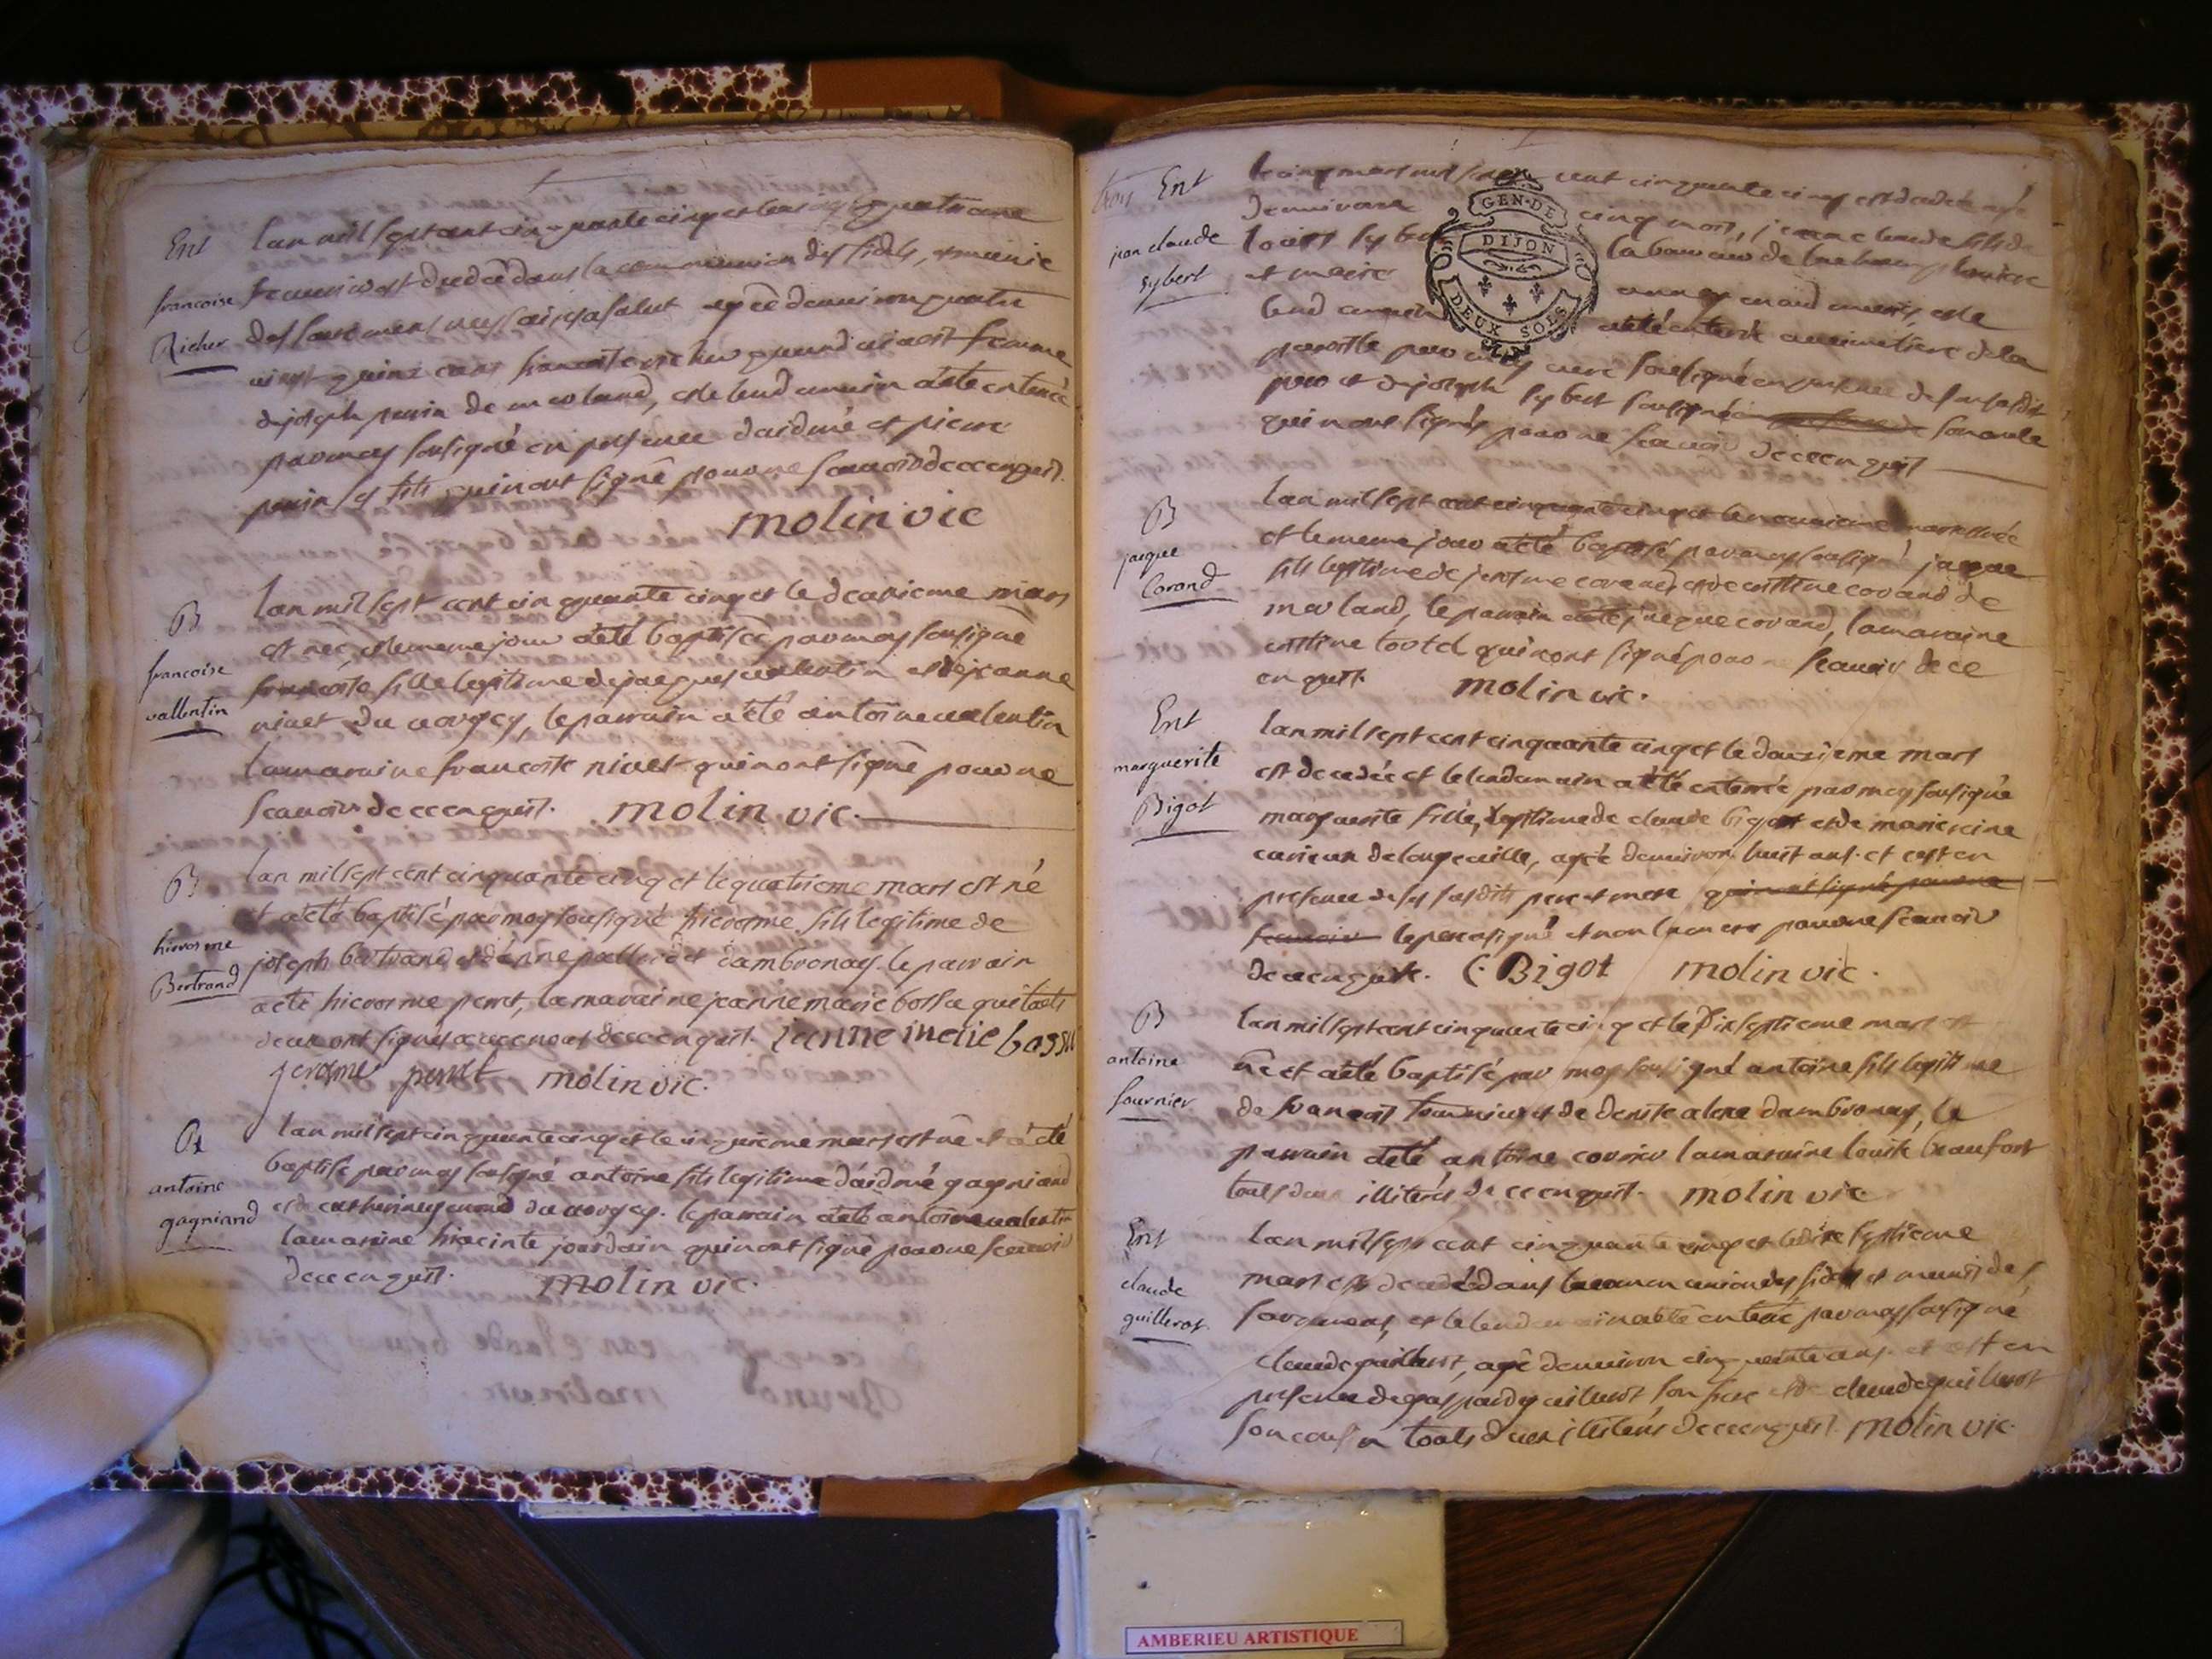 Ent
francoise
Richer
lan mil sept cent cinquante cinq et le vingt quatrieme
fevrier est decedée dans la communion des fideles, et munie
des sacremens necessaires a salut agée denviron quatre
vingt quinze ans francoise richer quand vivait femme
de joseph perrin de merland, et le lendemain a eté enterrée
par moy soussigné en presence daidmé et pierre
perrin ses fils qui nont signé pour ne scavoir de ce enquis.
molin vic
B
francoise
vallentin
lan mil sept cent cinquante cinq et le deuxieme mars
est née, et le meme jour a eté baptisée par moy soussigné
francoise fille legitime de jacques valentin et de jeanne
nivet du vorgey, le parrain a eté antoine valentin
la maraine francoise nivet qui nont signé pour ne
scavoir de ce enquis. molin vic.
B
hierosme
Bertrand
lan mil sept cent cinquante cinq et le quatrieme mars est né
et a eté baptisé par moy soussigné hierosme fils legitime de
joseph bertrand et danne dambronay. le parrain
a eté hierosme peret, la maraine jeanne marie bossu qui touts
deux ont signés avec nous de ce enquis. ieanne marie bossu
jerosme peret molin vic.
B
antoine
gagniard
lan mil sept cinquante cinq et le cinquieme mars est né et a eté
baptisé par moy soussigné antoine fils legitime daidmé gagniard
et de catherine du vorgey. le parrain a eté antoine valentin
la maraine hiacinte jourdain qui nont signé pour ne scavoir
de ce enquis. molin vic.
Ent
jean claude
sybert
le cinq mars mil sept cent cinquante cinq est decedé agé
denviron cinq mois, jean claude fils de
louis sybert
et marie
lend emain a eté enterré au cimetiere de la
paroisse par moy vicaire soussigné en presence de son susdit
pere et de joseph sybert soussigné son oncle
qui nont signés pour ne scavoir de ce enquis
GEN. DE
DIJON
DEUX SOLS
B
jacque
Corand
lan mil sept cent cinquante cinq et le neuvieme mars est né
et le meme jour a eté baptisé par moy soussigné jacque
fils legitime de jerosme corand et de estiene corand de
merland, le parrain a eté jacque corand, la maraine
estiene tootel qui nont signé pour ne scavoir de ce
enquis. molin vic.
Ent
marguerite
Bigot
lan mil sept cent cinquante cinq et le douzieme mars
est decedée et le lendemain a eté enterrée par moy soussigné
marguerite fille legitime de claude bigot et de marie
agée denviron huit ans. et cest en
presence de ses susdits pere et mere qui nont signé pour ne
scavoir le pere a signé et non la mere pour ne scavoir
de ce enquise. C. Bigot molin vic.
B
antoine
fournier
lan mil sept cent cinquante cinq et le dix septieme mars est
né et a eté baptisé par moy soussigné antoine fils legitime
de francois fournier et de denise dambronay, le
parrain a eté antoine la maraine louise beaufort
touts deux illiterés de ce enquis. molin vic
Ent
claude
guillerot
lan mil sept cent cinquante cinq et le dix septieme
mars est decedé dans la communion des fideles et munis des
sacremens, et le lendemain a eté enterré par moy soussigné
claude guillerot, agé denviron cinquante ans. et cest en
presence de gaspard guillerot son frere et de claude guillerot
son cousin touts deux illiterés de ce enquis. molin vic.
AMBERIEU ARTISTIQUE